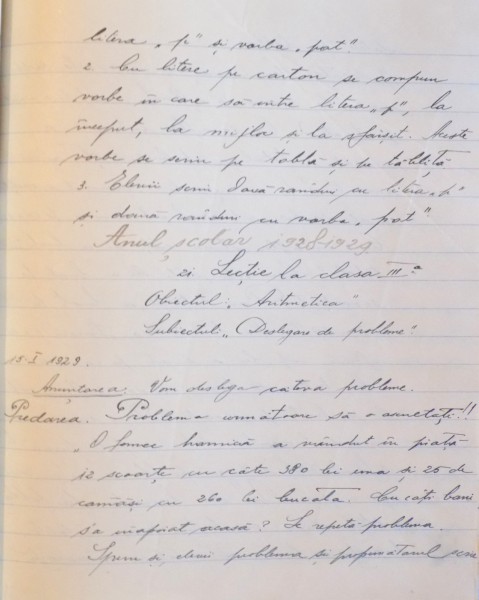 litera „p" și vorba „pat".
2. Cu litere pe carton se compun
vorbe în care să intre litera „p", la
început, la mijloc și la sfârșit. Aceste
vorbe se scriu pe tablă și pe tăbliță
3. Elevii scriu două rânduri cu litera „p"
și două rânduri cu vorba „pat"
Anul școlar 1928-1929
21. Lecție la clasa III a
Obiectul: „Aritmetica"
Subiectul: „Deslegare de probleme".
15 I 1929.
Anunțarea: Vom deslega câteva probleme.
Predarea. Problema următoare să o ascultați!!
„O femee harnică a vândut în piață
12 scoarțe cu câte 380 lei una și 25 de
cămăși cu 260 lei bucata. Cu câți bani
s'a înapoiat acasă? Se repetă problema.
Spun și elevii problema și propunătorul scrie